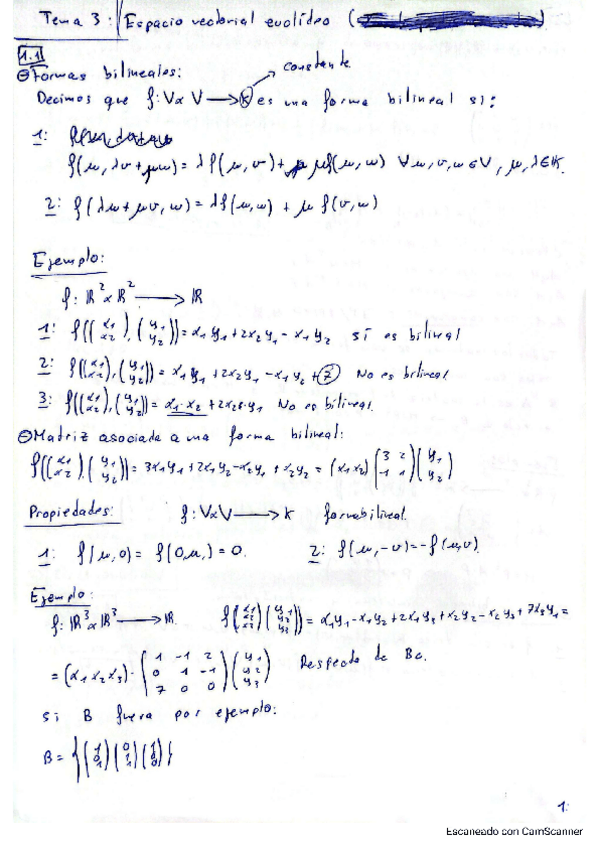 Tema 3: Espacio vectorial euclídeo (
1.1
Formas bilineales:
constante
Decimos que f: V×V → K es una forma bilineal si:
1:
f(u, λv+μw) = λ f(u,v) + μ f(u,w) ∀u,v,w ∈ V, μ,λ ∈ K.
2: f(λu+μv, w) = λf(u,w) + μ f(v,w)
Ejemplo:
f: ℝ² × ℝ² → ℝ
1: f((x1 x2),(y1 y2)) = x1y1+2x2y1-x1y2 sí es bilineal
2: f((x1 x2),(y1 y2)) = x1y1+2x2y1-x1y2+7 No es bilineal.
3: f((x1 x2),(y1 y2)) = x1·x2+2x2·y1 No es bilineal.
Matriz asociada a una forma bilineal:
f((x1 x2),(y1 y2)) = 3x1y1+2x1y2-x2y1+x2y2 = (x1 x2) (3 2 -1 1) (y1 y2)
Propiedades: f: V×V → K forma bilineal.
1: f(u,0) = f(0,u,) = 0. 2: f(u,-v) = -f(u,v).
Ejemplo:
f: ℝ³×ℝ³ → ℝ. f((x1 x2 x3)(y1 y2 y3)) = x1y1-x1y2+2x1y3+x2y2-x2y3+7x3y1 =
= (x1 x2 x3)·(1 -1 2 0 1 -1 7 0 0)(y1 y2 y3) Respecto de Bc.
Si B fuera por ejemplo:
B = {(1 0 1)(0 1 1)(1 1 0)}
1:
Escaneado con CamScanner